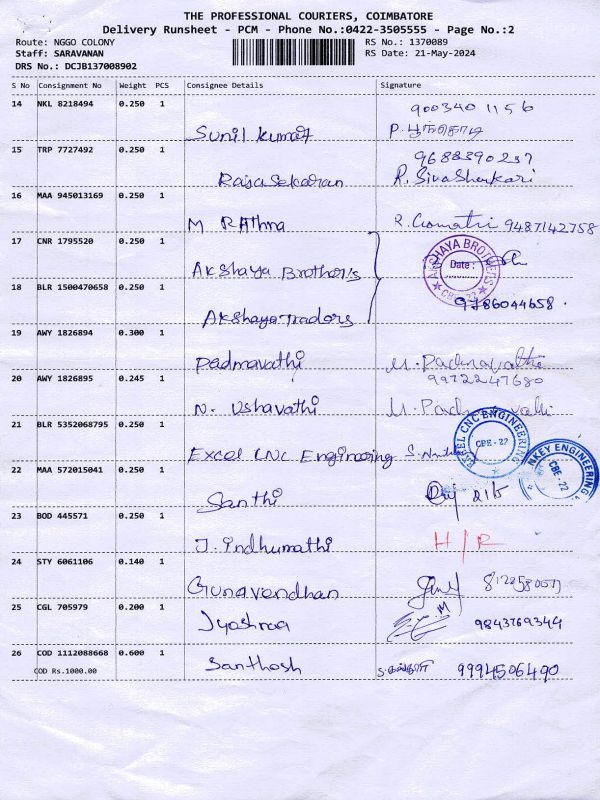 THE PROFESSIONAL COURIERS, COIMBATORE
Delivery Runsheet - PCM - Phone No.:0422-3505555 - Page No.:2
Route: NGGO COLONY RS No.: 1370089
Staff: SARAVANAN RS Date: 21-May-2024
DRS No.: DCJB137008902
S No Consignment No Weight PCS Consignee Details Signature
14 NKL 8218494 0.250 1 9003401156
Sunil kumar P. பூங்கொடி
15 TRP 7727492 0.250 1 9688390237
Rajasekaran R. Sivashankari
16 MAA 945013169 0.250 1
M Rathna R. Gomathi 9487142758
17 CNR 1795520 0.250 1 AKSHAYA BROTHERS
Akshaya Brother's Date:
CBE-22
18 BLR 1500470658 0.250 1 9786044658.
Akshaya Tradors
19 AWY 1826894 0.300 1
Padmavathi M. Padmavathi
20 AWY 1826895 0.245 1
N. Ushavathi M. Padmavathi
21 BLR 5352068795 0.250 1 EXCEL CNC ENGINEERING
CBE-22
Excel CNC Engineering
22 MAA 572015041 0.250 1 NKEY ENGINEERING
CBE-22
Santhi
23 BOD 445571 0.250 1
J. Indhumathi H/R
24 STY 6061106 0.140 1
Gunavendhan
25 CGL 705979 0.200 1
Jyoshnaa 9843769344
26 COD 1112088668 0.600 1
COD Rs.1000.00 Santhosh 9994506490